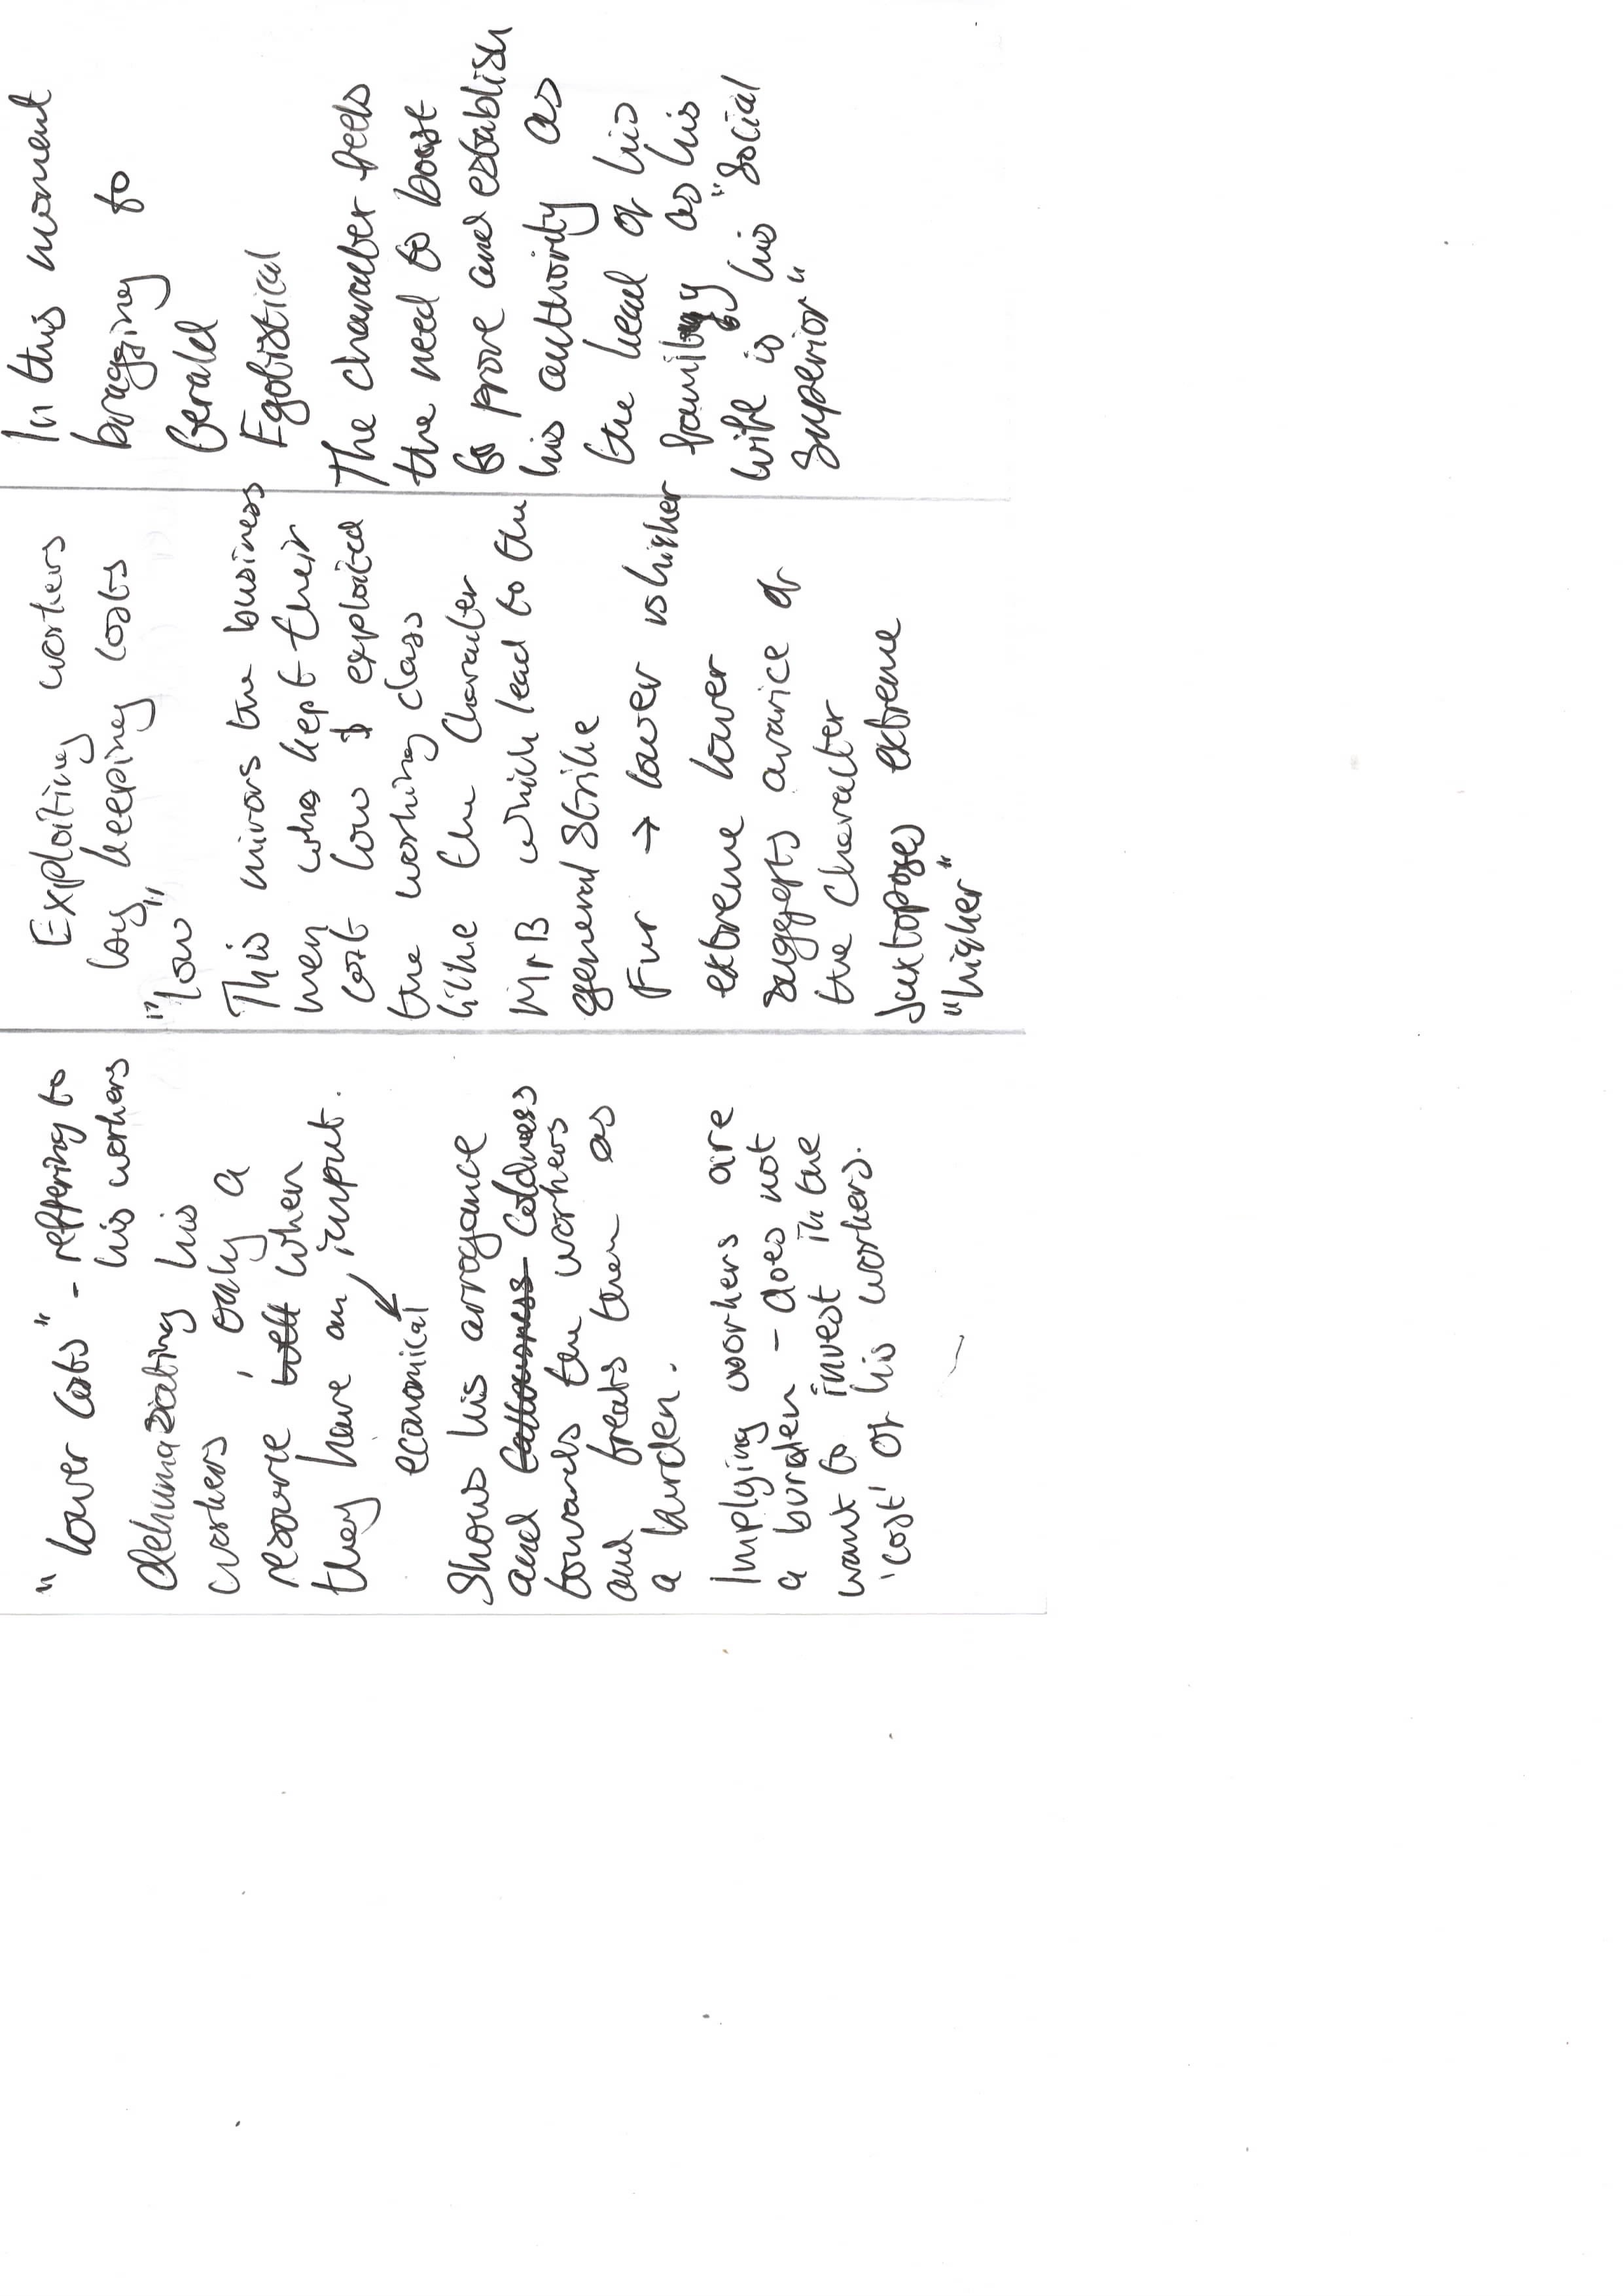 "lower costs" - reffering to
his workers
dehumazating his
workers, only a
resource when
they have an input.
economical
Shows his arrogance
and Callousness coldness
towards the workers
and treats them as
a burden.
Implying workers are
a burden - does not
want to invest in the
'cost' of his workers.
Exploiting workers
by keeping costs
"low"
This mirrors the business
men who kept their
cost low & exploited
the working class
like the character
Mr B which lead to the
general strike
Fur → lower vs higher
extreme lower
suggests avarice of
the character
Juxtoposes extreme
"higher"
In this moment
bragging to
Gerald
Egotistical
The character feels
the need to boast
to prove and establish
his authority as
the head of his
family as his
wife is his "social
superior"